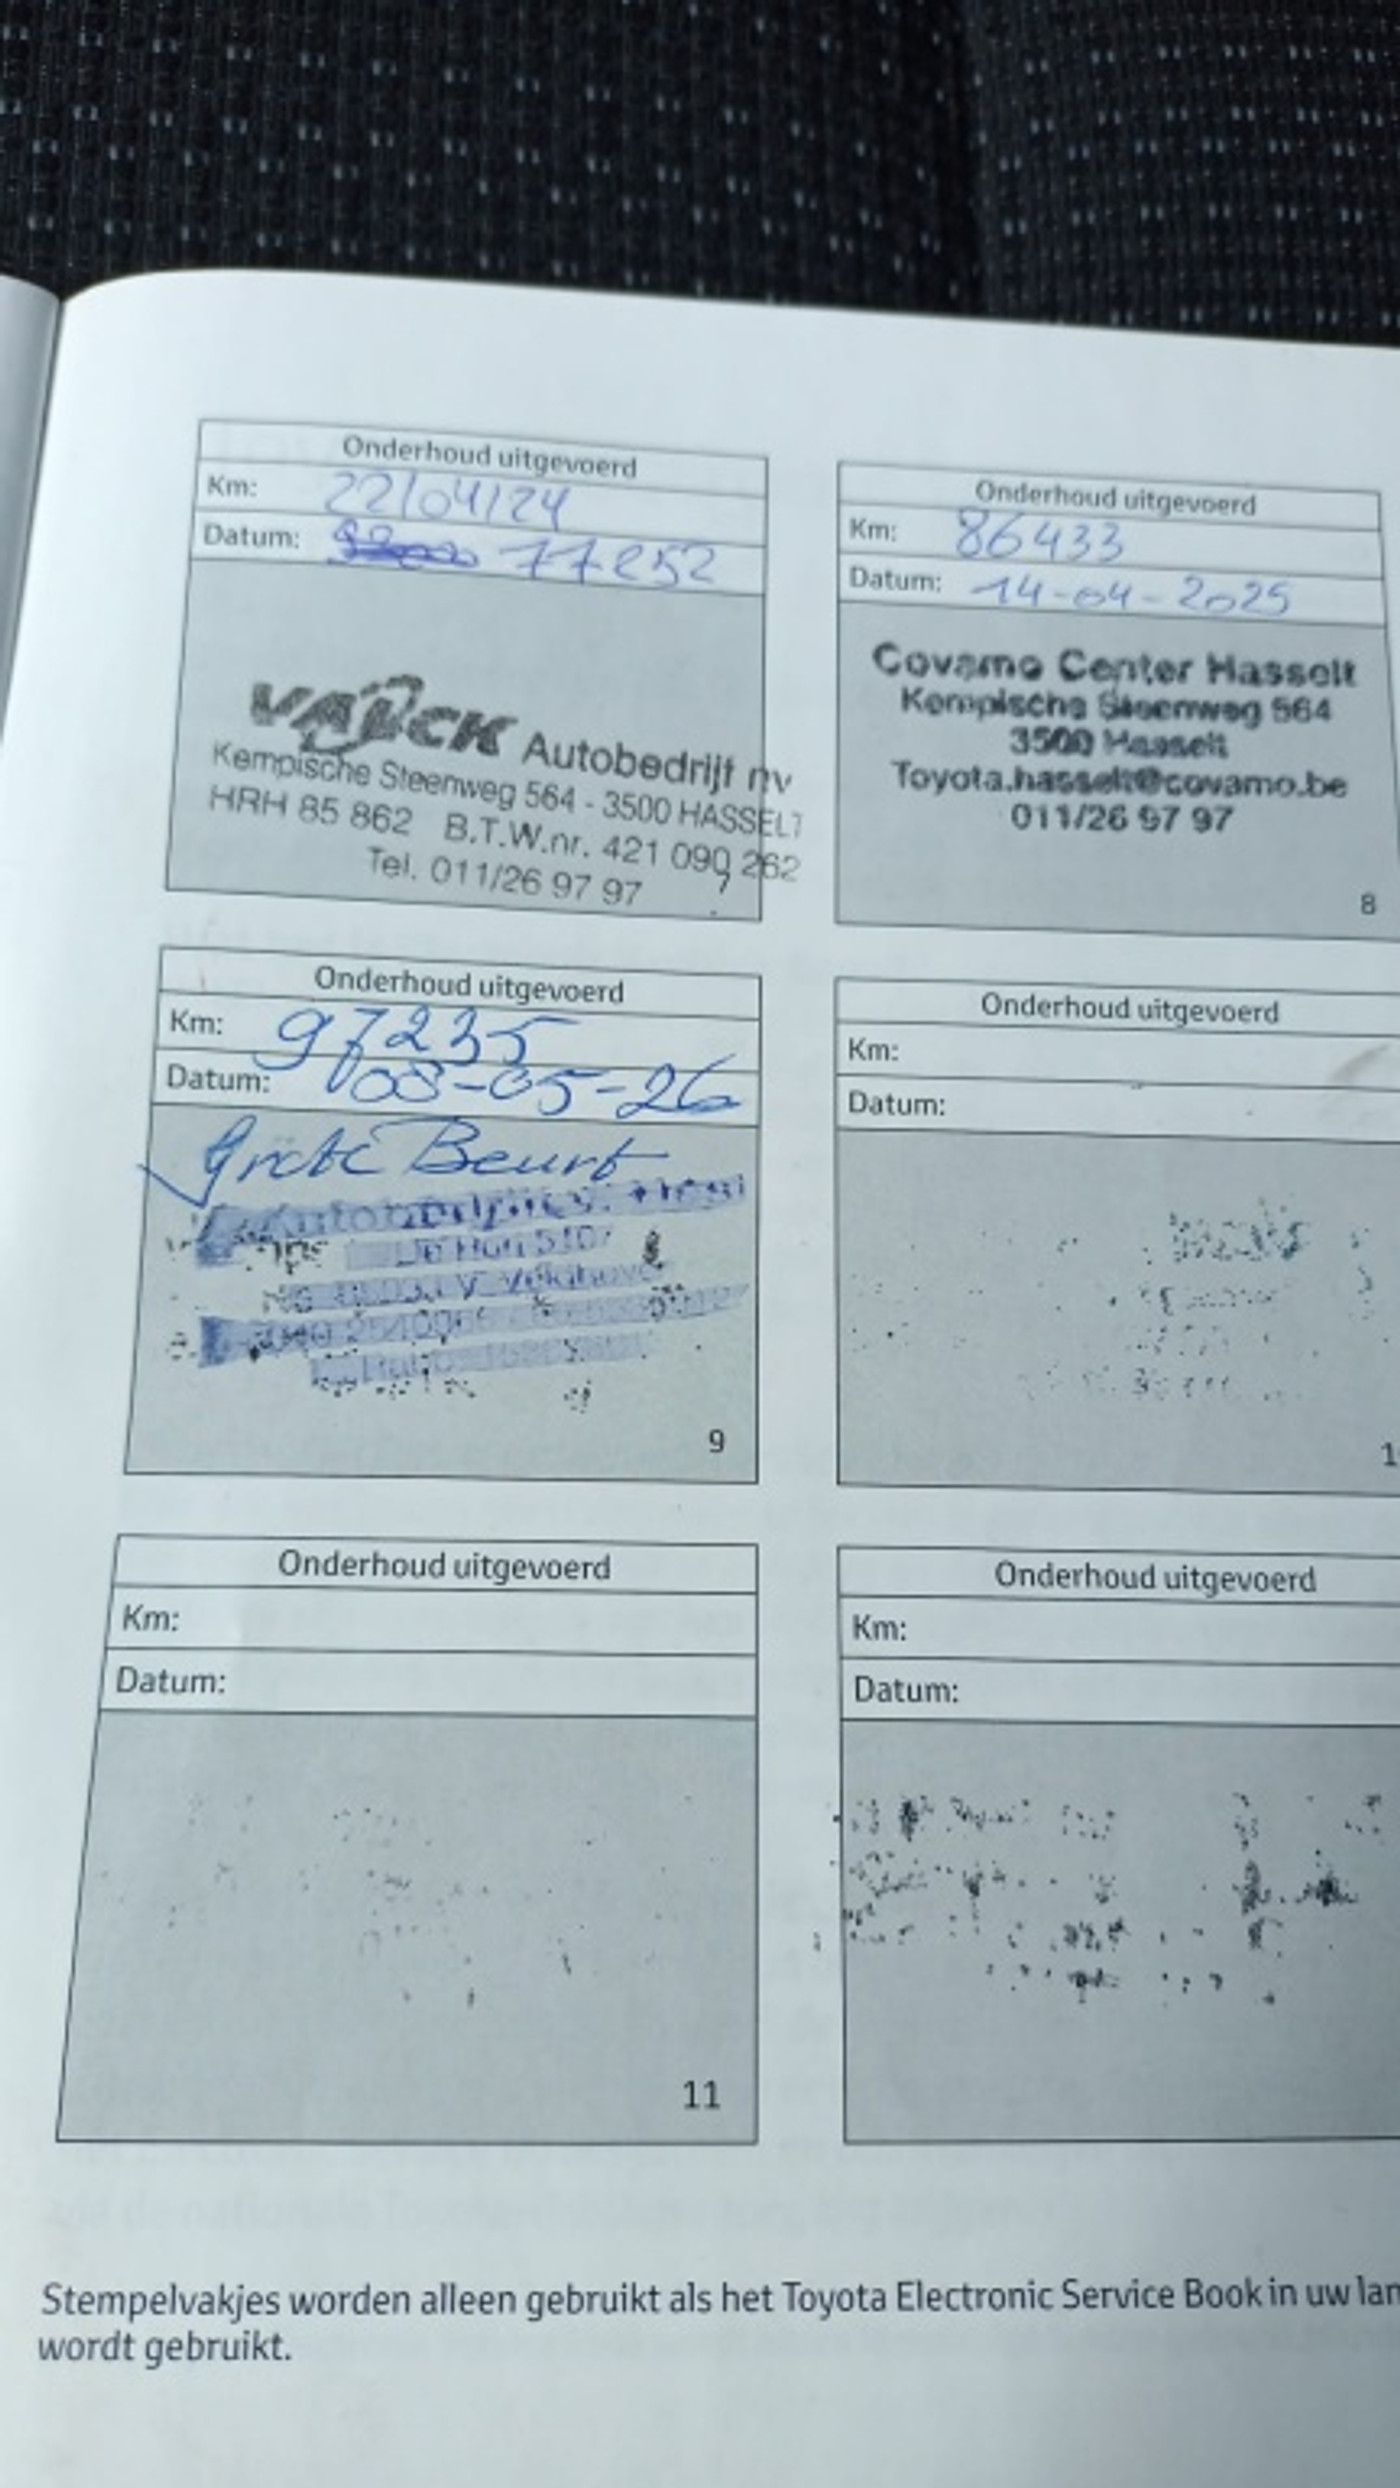 Onderhoud uitgevoerd
Km: 22/04/24
Datum: 77252
VALCK Autobedrijf nv
Kempische Steenweg 564 - 3500 HASSELT
HRH 85 862 B.T.W.nr. 421 090 262
Tel. 011/26 97 97
7
Onderhoud uitgevoerd
Km: 86433
Datum: 14-04-2025
Covamo Center Hasselt
Kempische Steenweg 564
3500 Hasselt
Toyota.hasselt@covamo.be
011/26 97 97
8
Onderhoud uitgevoerd
Km: 97235
Datum: 08-05-26
Grote Beurt
De Run 5107
9
Onderhoud uitgevoerd
Km:
Datum:
1
Onderhoud uitgevoerd
Km:
Datum:
11
Onderhoud uitgevoerd
Km:
Datum:
Stempelvakjes worden alleen gebruikt als het Toyota Electronic Service Book in uw lan
wordt gebruikt.